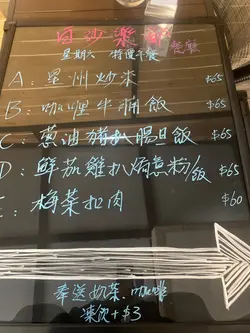 白沙樂 餐廳
星期六 特價午餐
A: 星洲炒米 $65
B: 咖喱牛腩飯 $65
C: 蔥油豬扒腸旦飯 $65
D: 鮮茄雞扒焗意粉/飯 $65
E: 梅菜扣肉 $60
奉送奶茶、咖啡
凍飲+$3